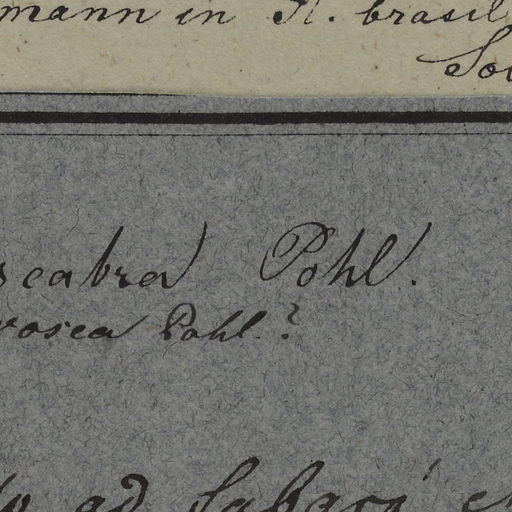 mann in Fl. brasil
scabra Pohl.
rosea Pohl.?
ad Sabará